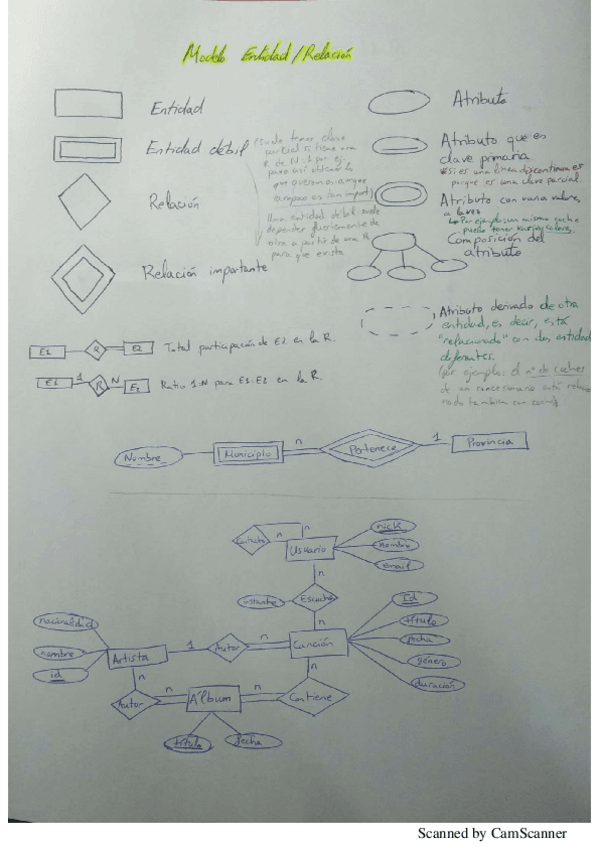 Modelo Entidad/Relación
Entidad
Atributo
Entidad débil
(Suele tener clave
parcial si tiene una
R de N:1 por ej.
Una entidad débil suele
depender fuertemente de
otra a partir de una R
para que exista
Atributo que es
clave primaria
*Si es una línea discontinua es
porque es una clave parcial.
Relación
Atributo con varios valores
a la vez
Por ejemplo: un mismo coche
puede tener varios colores.
Composición del
atributo
Relación importante
Atributo derivado de otra
entidad, es decir, está
"relacionado" con dos entidad
diferentes.
(por ejemplo: el nº de coches
de un concesionario está relacio
nado también con
E1
R
E2
Total participación de E2 en la R.
E1
1
R
N
E2
Ratio 1:N para E1:E2 en la R.
Nombre
Municipio
n
Pertenece
1
Provincia
Contacto
n
n
Usuario
nick
nombre
email
n
instante
Escucha
n
Id
título
fecha
género
duración
nacionalidad
nombre
id
Artista
1
Autor
n
Canción
n
n
Autor
n
Álbum
n
Contiene
título
fecha
Scanned by CamScanner